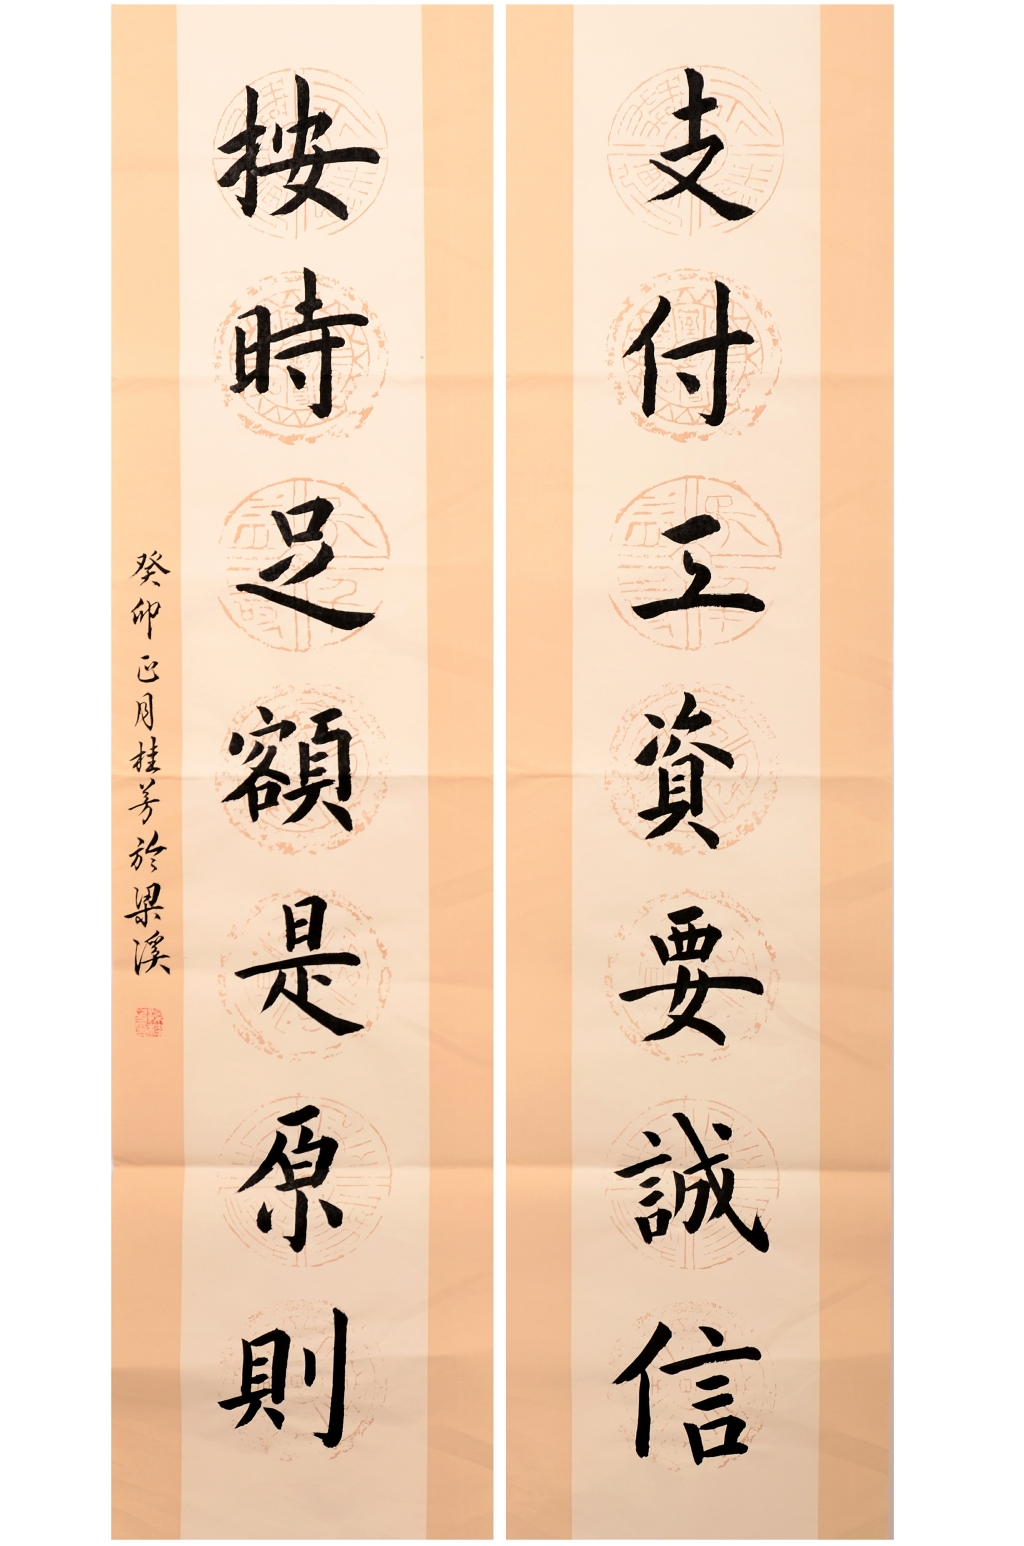 支付工資要誠信
按時足額是原則
癸卯正月桂芳於梁溪